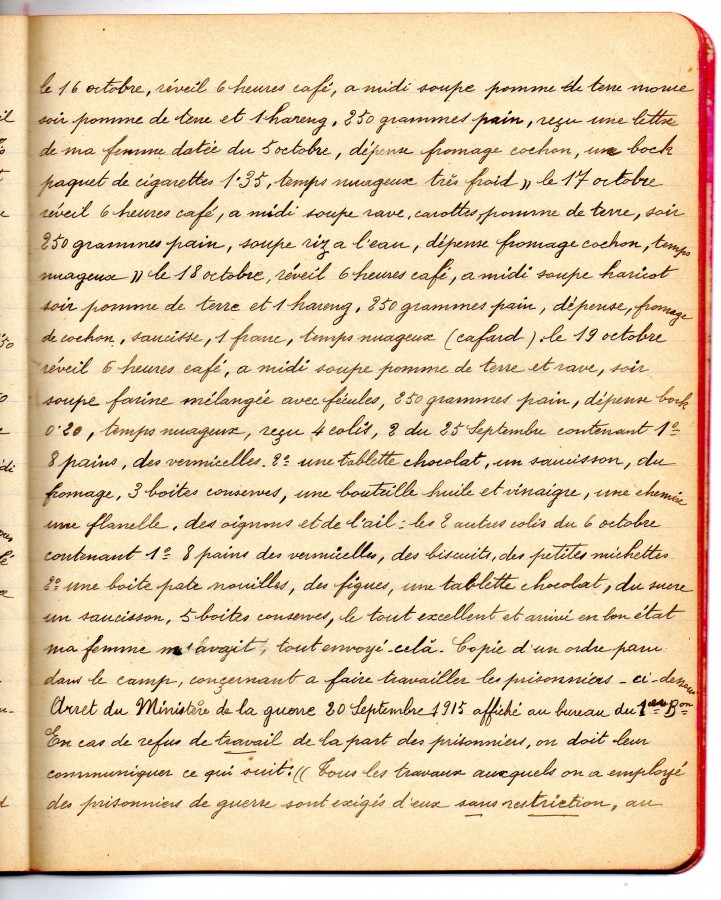 le 16 octobre, réveil 6 heures café, a midi soupe pomme de terre morue
soir pomme de terre et 1 hareng, 250 grammes pain, reçu une lettre
de ma femme datée du 5 octobre, dépense fromage cochon, un bock
paquet de cigarettes 1.35, temps nuageux très froid )) le 17 octobre
réveil 6 heures café, a midi soupe rave, carottes, pomme de terre, soir
250 grammes pain, soupe riz a l'eau, dépense fromage cochon, temps
nuageux )) le 18 octobre, réveil 6 heures café, a midi soupe haricot
soir pomme de terre et 1 hareng, 250 grammes pain, dépense, fromage
de cochon, saucisse, 1 franc, temps nuageux (cafard). le 19 octobre
réveil 6 heures café, a midi soupe pomme de terre et rave, soir
soupe farine mélangée avec féculs, 250 grammes pain, dépense bock
0.20, temps nuageux, reçu 4 colis, 2 du 25 Septembre contenant 1º
8 pains, des vermicelles. 2º une tablette chocolat, un saucisson, du
fromage, 3 boites conserves, une bouteille huile et vinaigre, une chemise
une flanelle, des oignons et de l'ail : les 2 autres colis du 6 octobre
contenant 1º 8 pains des vermicelles, des biscuits, des petites michettes
2º une boite pate nouilles, des figues, une tablette chocolat, du sucre
un saucisson, 5 boites conserves, le tout excellent et arrivé en bon état
ma femme m'avait, tout envoyé celà. Copie d'un ordre paru
dans le camp, conçernant a faire travailler les prisonniers - ci-dessous
Arret du Ministère de la guerre 20 Septembre 1915 affiché au bureau du 1er Bon
En cas de refus de travail de la part des prisonniers, on doit leur
communiquer ce qui suit : (( Tous les travaux auxquels on a employé
des prisonniers de guerre sont exigés d'eux sans restriction, au